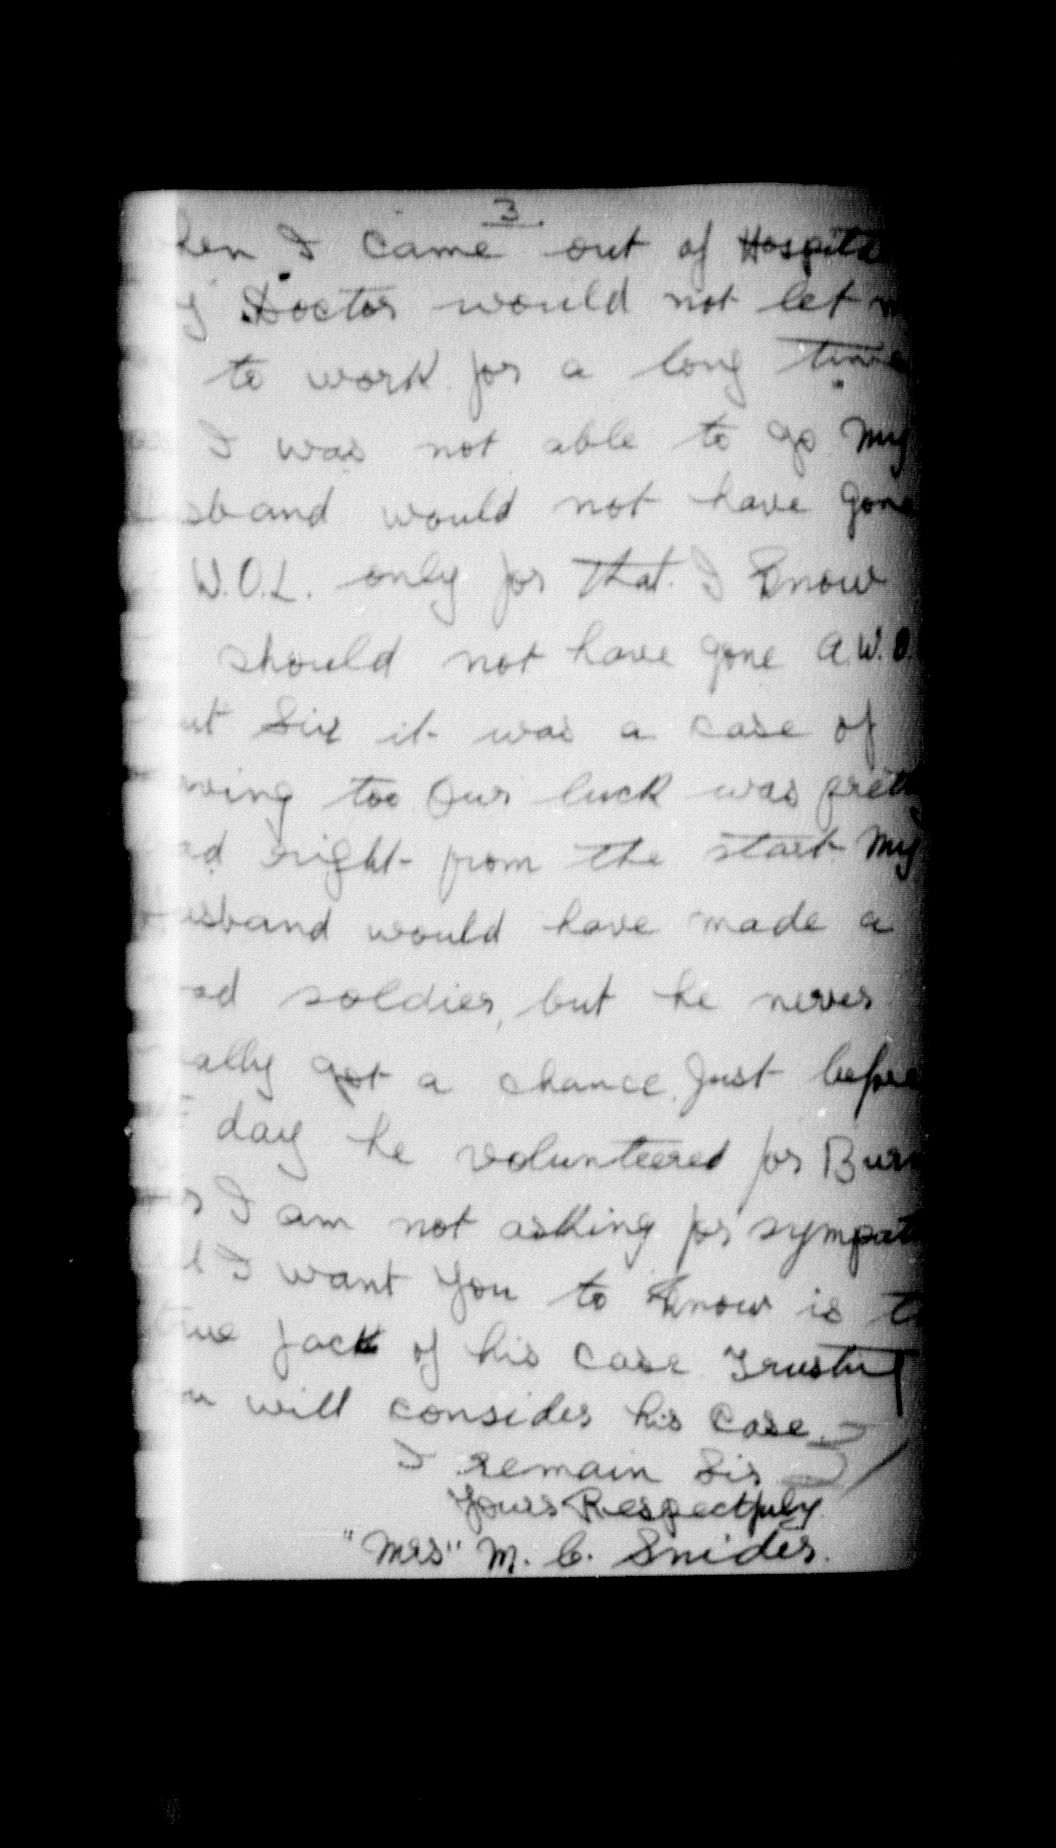 3.
hen I came out of Hospita
y Doctor would not let m
to work for a long time
I was not able to go My
sband would not have gone
W.O.L. only for that. I know
should not have gone A.W.O.
ut Sir it was a case of
oving too Our luck was pretty
ad right from the start My
usband would have made a
od soldier, but he never
ally got a chance. Just before
day he volunteered for Burm
I am not asking for sympat
ll I want you to know is t
true fact of his case Trusting
ou will consider his case
I remain Sir
Yours Respectfuly
"Mrs" M. C. Snider.